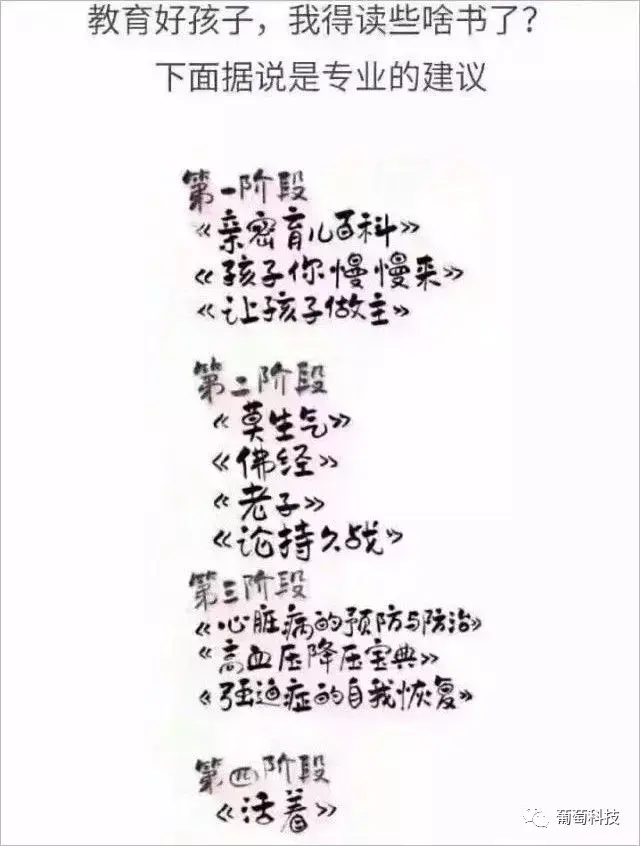 教育好孩子，我得读些啥书了？
下面据说是专业的建议
第一阶段
《亲密育儿百科》
《孩子你慢慢来》
《让孩子做主》
第二阶段
《莫生气》
《佛经》
《老子》
《论持久战》
第三阶段
《心脏病的预防与防治》
《高血压降压宝典》
《强迫症的自我恢复》
第四阶段
《活着》
葡萄科技